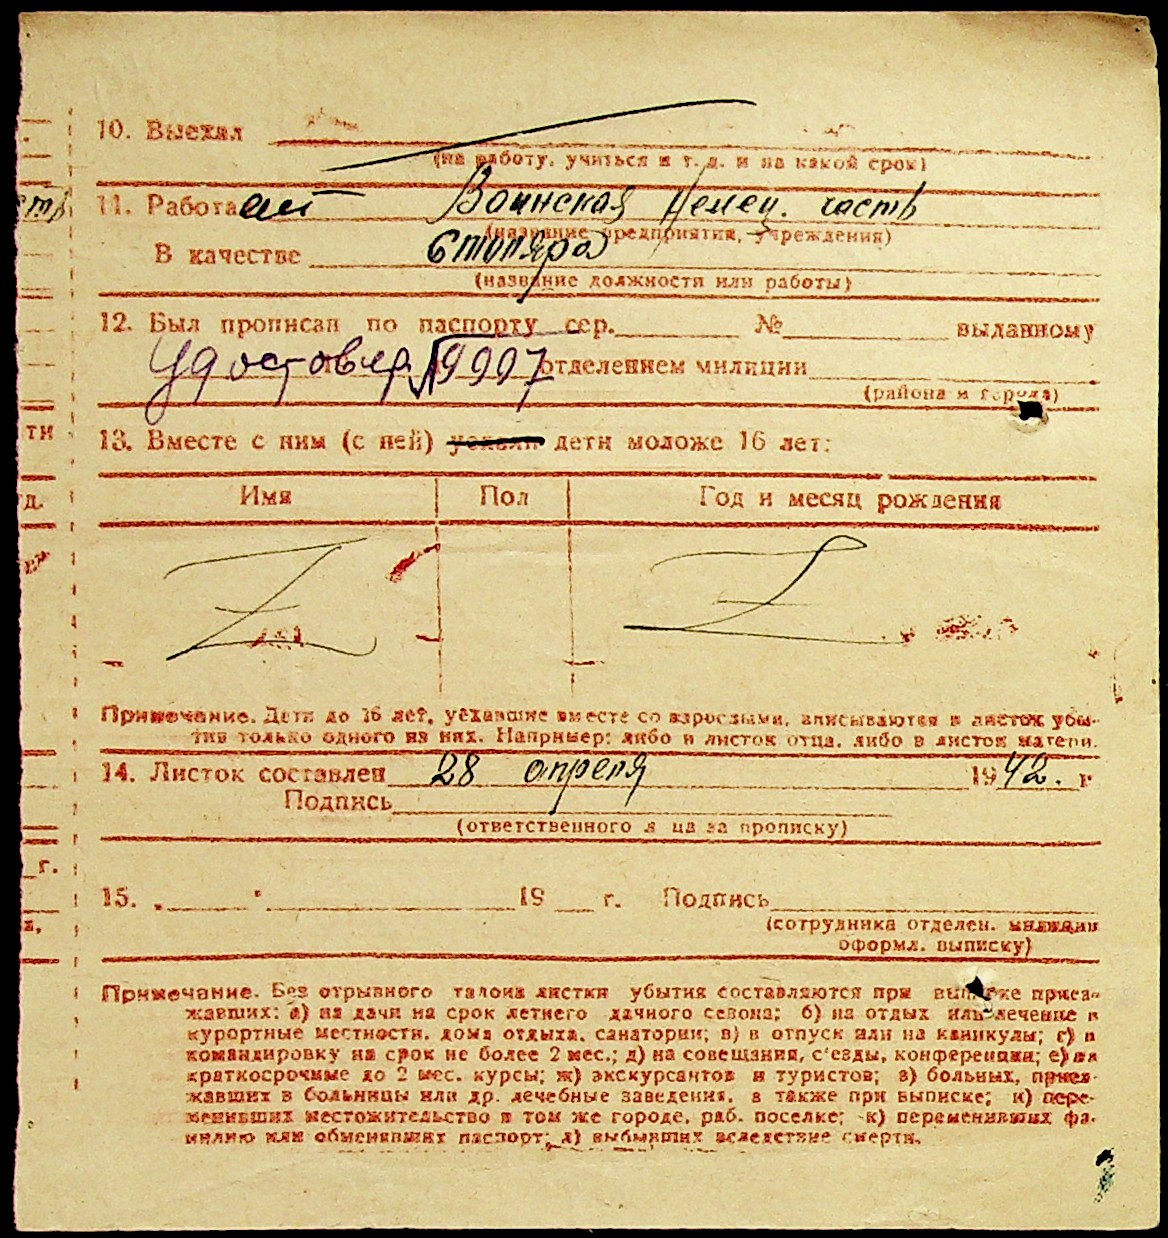 10. Выехал
(на работу, учиться и т. д. и на какой срок)
11. Работает Воинская Немец. часть
(название предприятия, учреждения)
В качестве Столяра
(название должности или работы)
12. Был прописан по паспорту сер. № выданному
Удостовер. №9997 отделением милиции
(района и города)
13. Вместе с ним (с ней) уехали дети моложе 16 лет:
Имя Пол Год и месяц рождения
Примечание. Дети до 16 лет, уехавшие вместе со взрослыми, вписываются в листок убы-
тия только одного из них. Например: либо в листок отца, либо в листок матери.
14. Листок составлен 28 апреля 1942. г
Подпись
(ответственного лица за прописку)
15. „ " 19 г. Подпись
(сотрудника отделен. милиции
оформл. выписку)
Примечание. Без отрывного талона листки убытия составляются при выписке приез-
жавших: а) на дачи на срок летнего дачного сезона; б) на отдых или лечение в
курортные местности, дома отдыха, санатории; в) в отпуск или на каникулы; г) в
командировку на срок не более 2 мес.; д) на совещания, с'езды, конференции; е) на
краткосрочные до 2 мес. курсы; ж) экскурсантов и туристов; з) больных, приез-
жавших в больницы или др. лечебные заведения, а также при выписке; и) пере-
менивших местожительство в том же городе, раб. поселке; к) переменивших фа-
милию или обменявших паспорт; л) выбывших вследствие смерти.